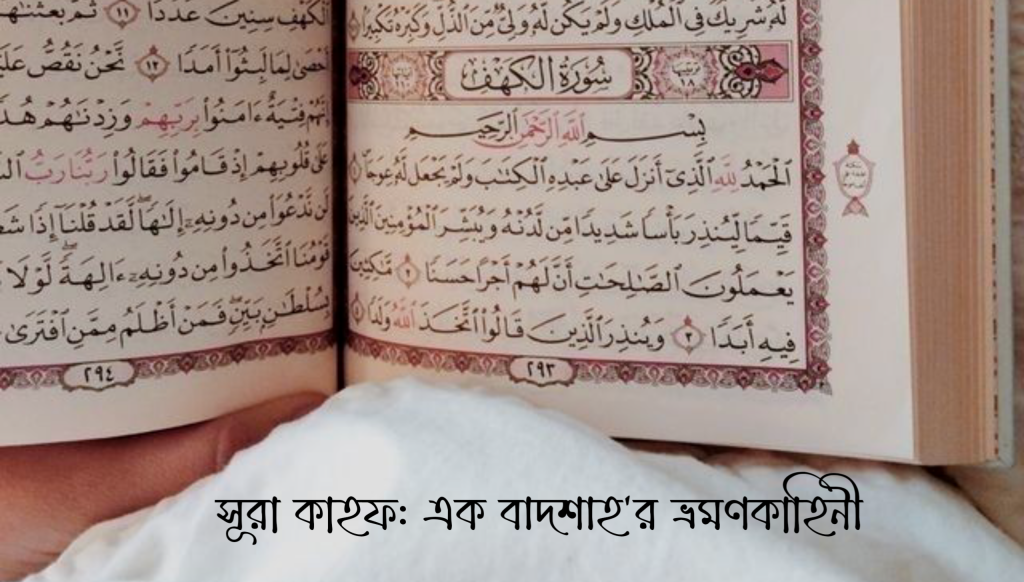 لَهُۥ شَرِيكٌ فِي ٱلۡمُلۡكِ وَلَمۡ يَكُن لَّهُۥ وَلِيٌّ مِّنَ ٱلذُّلِّ وَكَبِّرۡهُ تَكۡبِيرَۢا
سُورَةُ الكَهۡفِ
بِسۡمِ ٱللَّهِ ٱلرَّحۡمَٰنِ ٱلرَّحِيمِ
ٱلۡحَمۡدُ لِلَّهِ ٱلَّذِيٓ أَنزَلَ عَلَىٰ عَبۡدِهِ ٱلۡكِتَٰبَ وَلَمۡ يَجۡعَل لَّهُۥ عِوَجَا ١
قَيِّمٗا لِّيُنذِرَ بَأۡسٗا شَدِيدٗا مِّن لَّدُنۡهُ وَيُبَشِّرَ ٱلۡمُؤۡمِنِينَ ٱلَّذِينَ
يَعۡمَلُونَ ٱلصَّٰلِحَٰتِ أَنَّ لَهُمۡ أَجۡرًا حَسَنٗا ٢ مَّٰكِثِينَ
فِيهِ أَبَدٗا ٣ وَيُنذِرَ ٱلَّذِينَ قَالُواْ ٱتَّخَذَ ٱللَّهُ وَلَدٗا ٤
٢٩٣
ٱلۡكَهۡفِ سِنِينَ عَدَدٗا ١١ ثُمَّ بَعَثۡنَٰهُمۡ
أَحۡصَىٰ لِمَا لَبِثُوٓاْ أَمَدٗا ١٢ نَّحۡنُ نَقُصُّ
إِنَّهُمۡ فِتۡيَةٌ ءَامَنُواْ بِرَبِّهِمۡ وَزِدۡنَٰهُمۡ
عَلَىٰ قُلُوبِهِمۡ إِذۡ قَامُواْ فَقَالُواْ رَبُّنَا رَبُّ
لَن نَّدۡعُوَاْ مِن دُونِهِۦٓ إِلَٰهٗاۖ لَّقَدۡ قُلۡنَآ إِذٗا
قَوۡمُنَا ٱتَّخَذُواْ مِن دُونِهِۦٓ ءَالِهَةٗۖ لَّوۡلَا
بِسُلۡطَٰنِۭ بَيِّنٖۖ فَمَنۡ أَظۡلَمُ مِمَّنِ ٱفۡتَرَىٰ
٢٩٤
সূরা কাহফ: এক বাদশাহ'র ভ্রমণকাহিনী